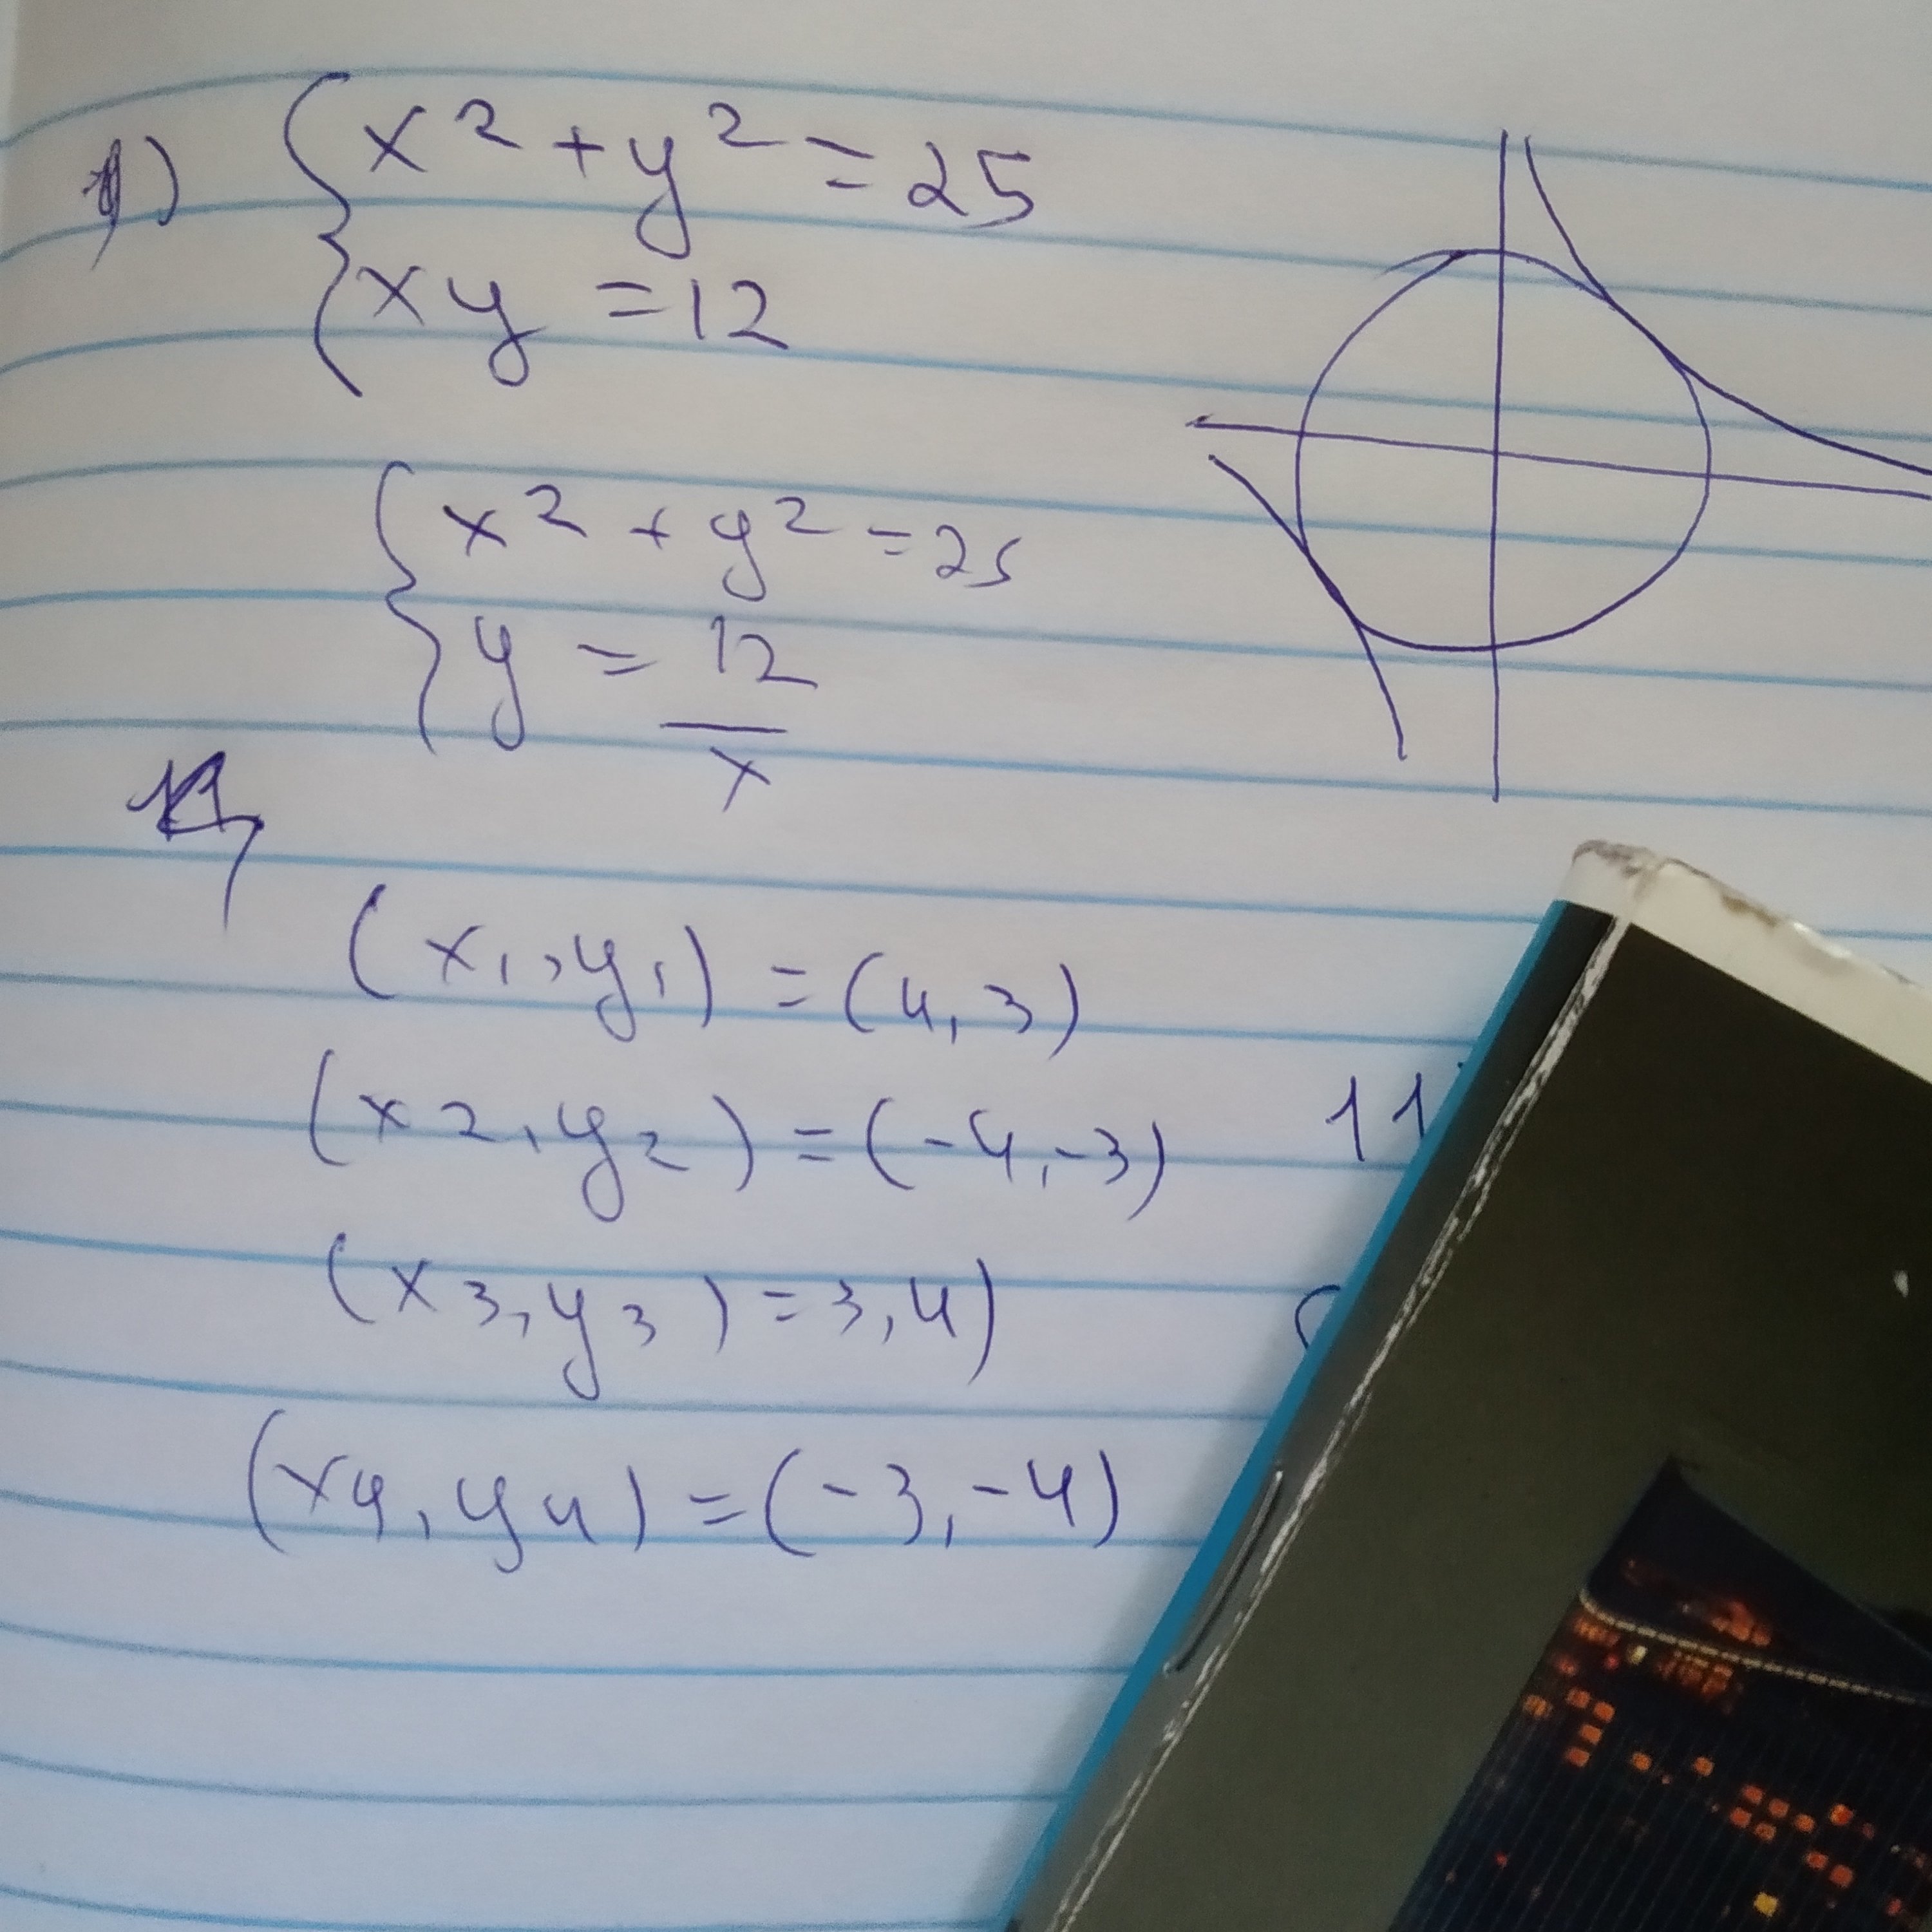 1) { x² + y² = 25
xy = 12
{ x² + y² = 25
y = 12/x
(x₁, y₁) = (4, 3)
(x2, y2) = (-4, -3)
11
(x3, y3) = 3, 4)
(x4, y4) = (-3, -4)